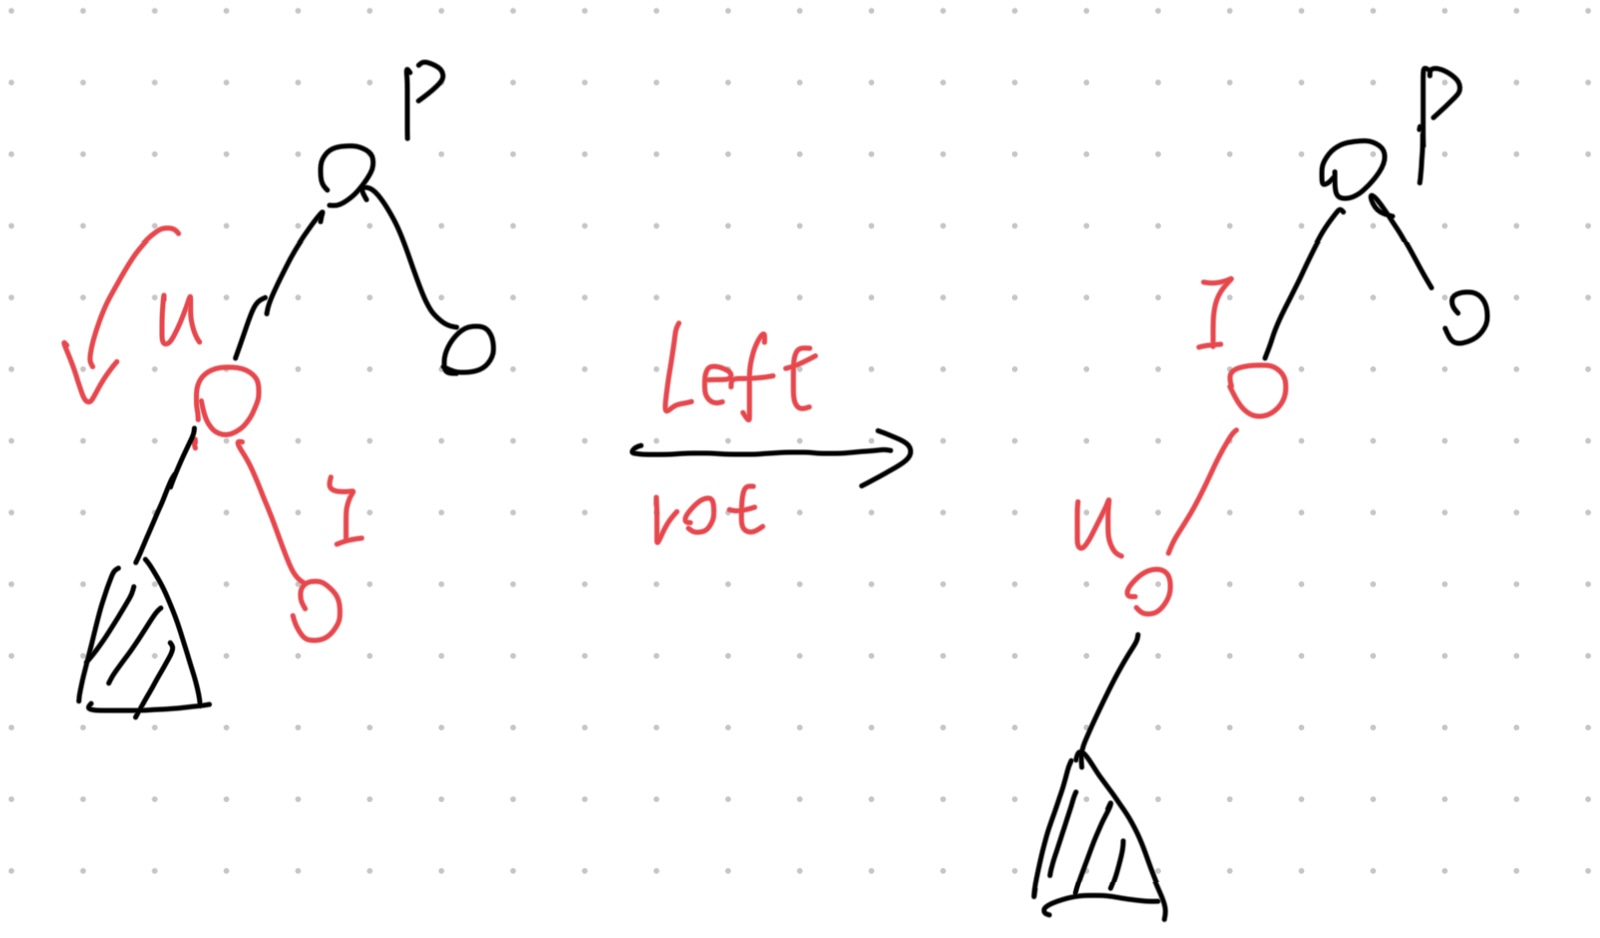 P
u
I
Left
rot
P
I
u